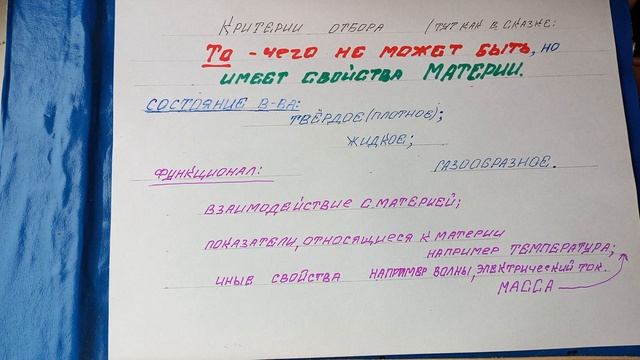 КРИТЕРИИ ОТБОРА /ТУТ КАК В СКАЗКЕ:
ТО - ЧЕГО НЕ МОЖЕТ БЫТЬ, НО
ИМЕЕТ СВОЙСТВА МАТЕРИИ.
СОСТОЯНИЕ В-ВА:
ТВЁРДОЕ (ПЛОТНОЕ);
ЖИДКОЕ;
ГАЗООБРАЗНОЕ.
ФУНКЦИОНАЛ:
ВЗАИМОДЕЙСТВИЕ С МАТЕРИЕЙ;
ПОКАЗАТЕЛИ, ОТНОСЯЩИЕСЯ К МАТЕРИИ
НАПРИМЕР ТЕМПЕРАТУРА;
ИНЫЕ СВОЙСТВА НАПРИМЕР ВОЛНЫ, ЭЛЕКТРИЧЕСКИЙ ТОК.
МАССА